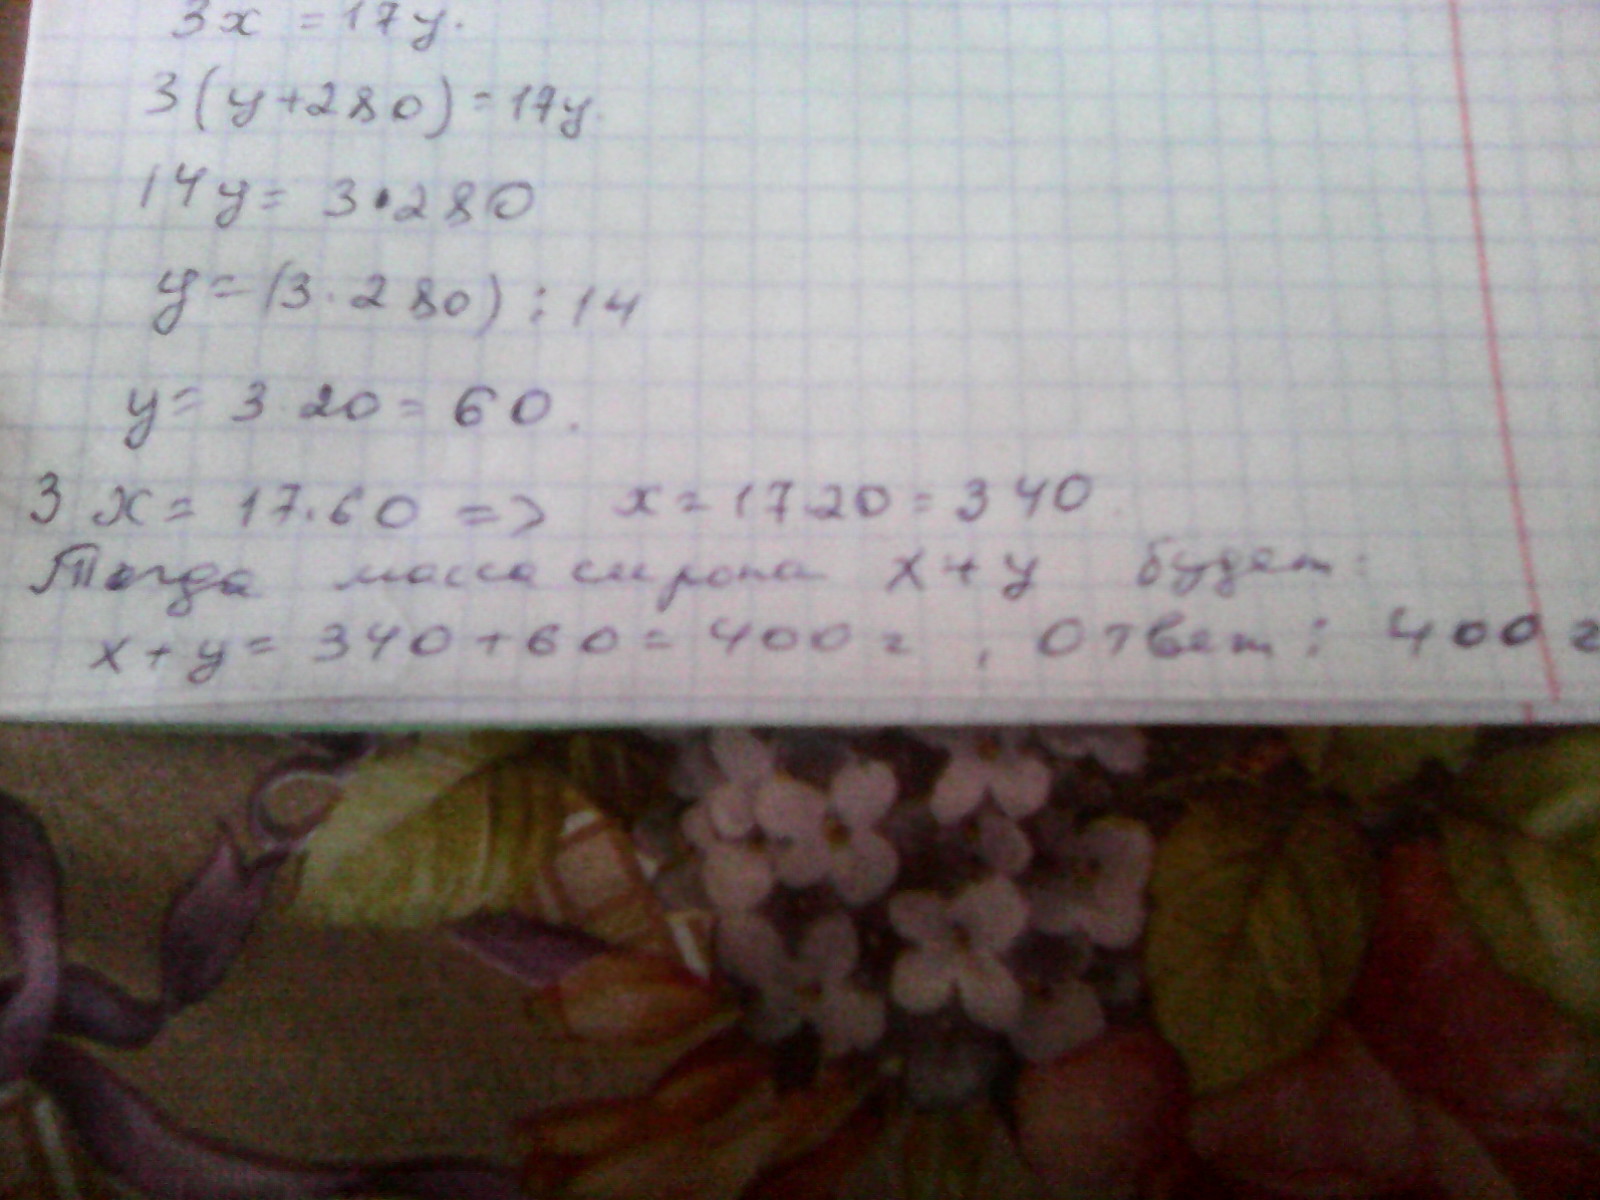 3x = 17y.
3(y+280) = 17y.
14y = 3·280
y = (3·280) : 14
y = 3·20 = 60.
3x = 17·60 => x = 17·20 = 340.
Тогда масса сиропа x + y будет:
x + y = 340 + 60 = 400 г, Ответ: 400 г